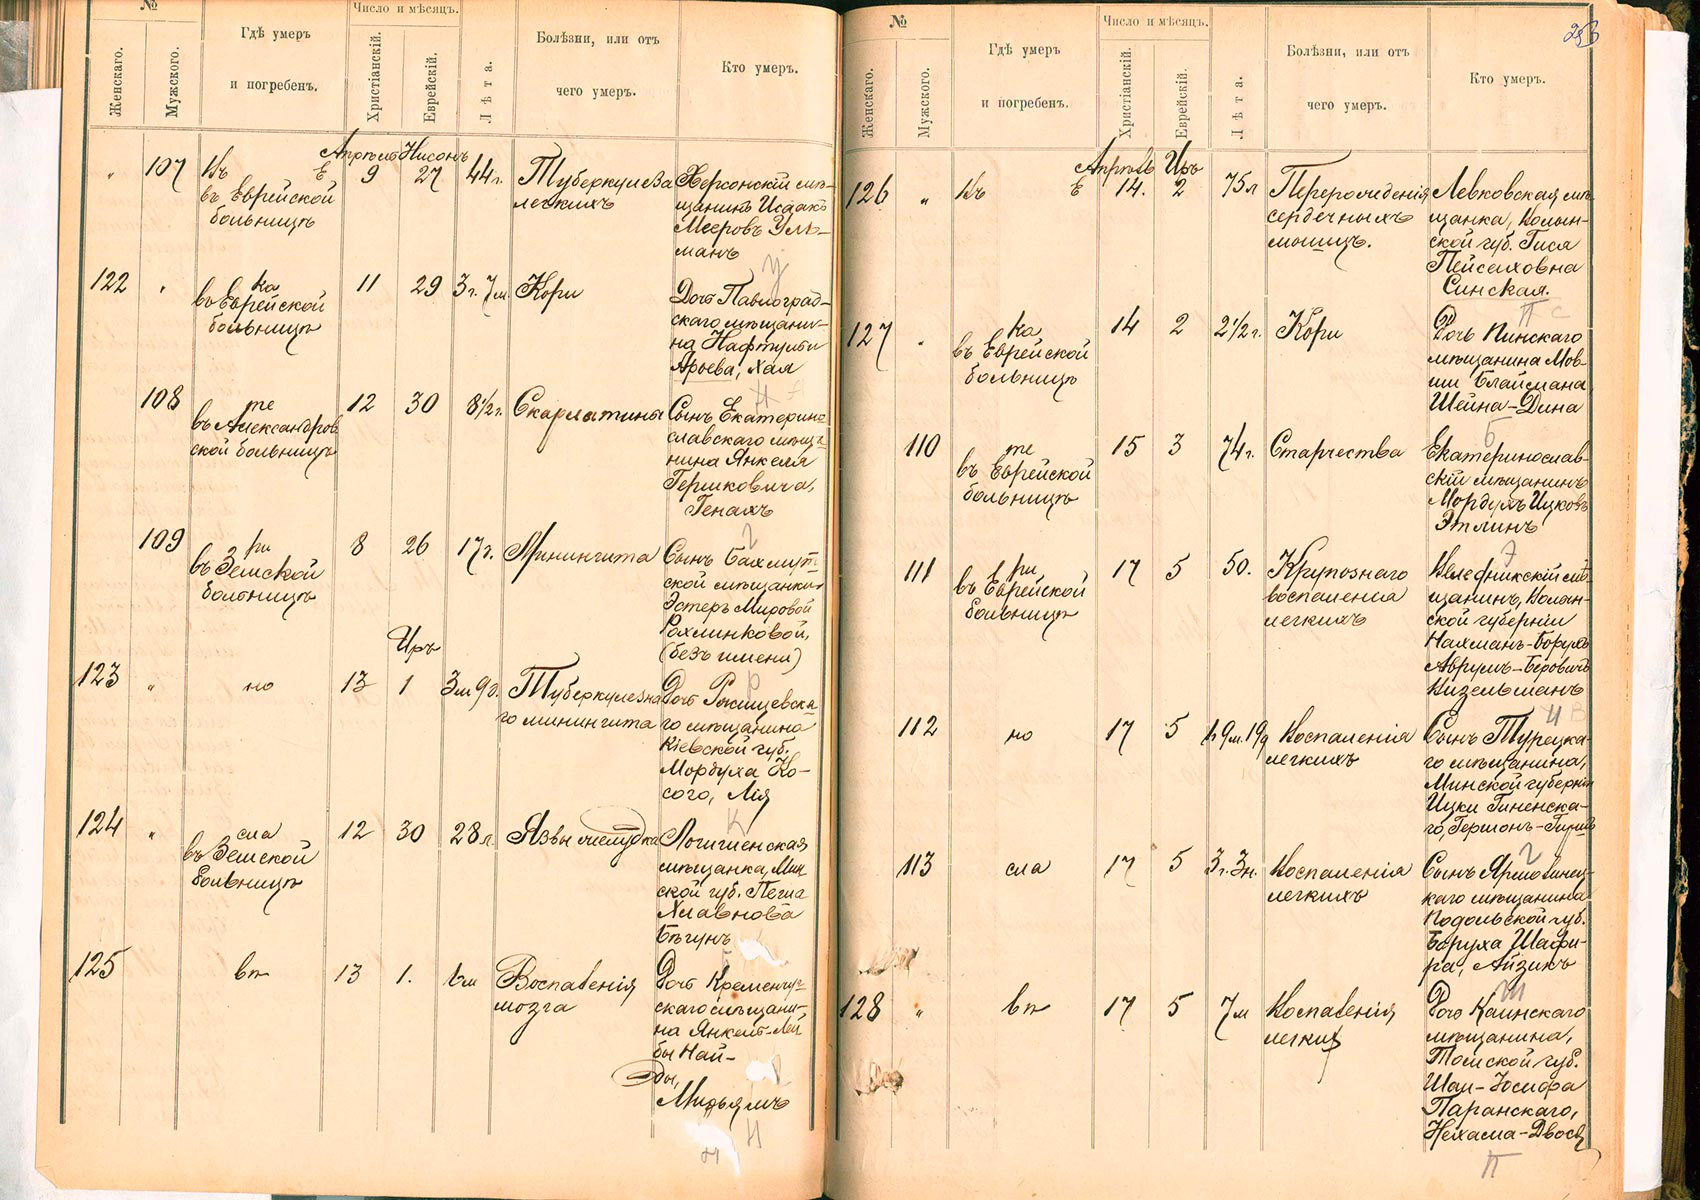 №
Женскаго.
Мужского.
Гдѣ умеръ
и погребенъ.
Число и мѣсяцъ.
Христіанскій.
Еврейскій.
Лѣта.
Болѣзни, или отъ
чего умеръ.
Кто умеръ.
Апрѣль Нисонъ
" 107
въ Еврейской
больницѣ
9 27 44 г.
Туберкулеза
легкихъ
Херсонскій мѣ-
щанинъ Исаакъ
Мееровъ Уль-
манъ
У
122
въ Еврейской
больницѣ
11 29 3 г. 7 м.
Кори
Дочь Павлоград-
скаго мѣщани-
на Нафтули
Арьева, Хая
108
въ Александров
ской больницѣ
12 30 8 1/2 г.
Скарлатины
Сынъ Екатерино
славскаго мѣща
нина Янкеля
Гершковича,
Генахъ
Г
109
въ Земской
больницѣ
8 26 17 г.
Минингита
Сынъ Бахмут-
ской мѣщанки
Эстеръ Мировой
Рахлинковой,
(безъ имени)
Р
Иръ
123 "
но
13 1 3 м 9 д.
Туберкулезна
го минингита
Дочь Ржищевска-
го мѣщанина
Кіевской губ.
Мордуха Ко-
сого, Лія
К
124 "
сла
въ Земской
больницѣ
12 30 28 л.
Язвы желудка
мѣщанка, Мин
ской губ. Песша
Хлавнова
Бѣгунъ
125
вп
13 1.
Воспаленія
мозга
Дочь Кременчуг-
скаго мѣщани-
на Янкель-Лей
бы Най-
ды,
Мирьямъ
Н
№
Женскаго.
Мужского.
Гдѣ умеръ
и погребенъ.
Число и мѣсяцъ.
Христіанскій.
Еврейскій.
Лѣта.
Болѣзни, или отъ
чего умеръ.
Кто умеръ.
Апрѣль Иръ
126 "
14. 2 75 л
Перерожденія
сердечныхъ
мышцъ.
Левковская мѣ-
щанка, Волын-
ской губ. Гися
Пейсаховна
Синская.
С
127
въ Еврейской
больницѣ
14 2 2 1/2 г.
Кори
Дочь Пинскаго
мѣщанина Мов-
ши Блаймана
Шейна-Дина
Б
110
въ Еврейской
больницѣ
15 3 74 г.
Старчества
Екатеринослав-
скій мѣщанинъ
Мордухъ Ицковъ
Этлинъ
Э
111
въ Еврейской
больницѣ
17 5 50.
Крупознаго
воспаленія
легкихъ
щанинъ, Волын-
ской губерніи
Нахманъ-Борухъ
Аврумъ-Беровичъ
Кизельманъ
112
но
17 5 1 г 9 м. 19 д
Воспаленія
легкихъ
Сынъ Турецка-
го мѣщанина,
Минской губерніи
Ицки Гиненска-
го, Гершонъ-
Г
113
сла
17 5 3 г. 3 м.
Воспаленія
легкихъ
Сынъ Ярмолинец-
каго мѣщанина
Подольской губ.
Боруха Шафи-
ра, Айзикъ
Ш
128 "
вп
17 5 7 м
Воспаленія
легких
Дочь Каинскаго
мѣщанина,
Томской губ.
Шаи-Іосифа
Паранскаго,
Нехама-Двося
П